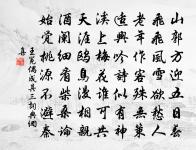 山郭方迎五日春
飛飛風雪欲愁人
老年作客殊無
遣興吟詩似有神
溪上梅花渾
天涯鷗鳥漫相親
酒闌細看柴桑論
始識桃源不避秦
王冕偶成其三詞典網